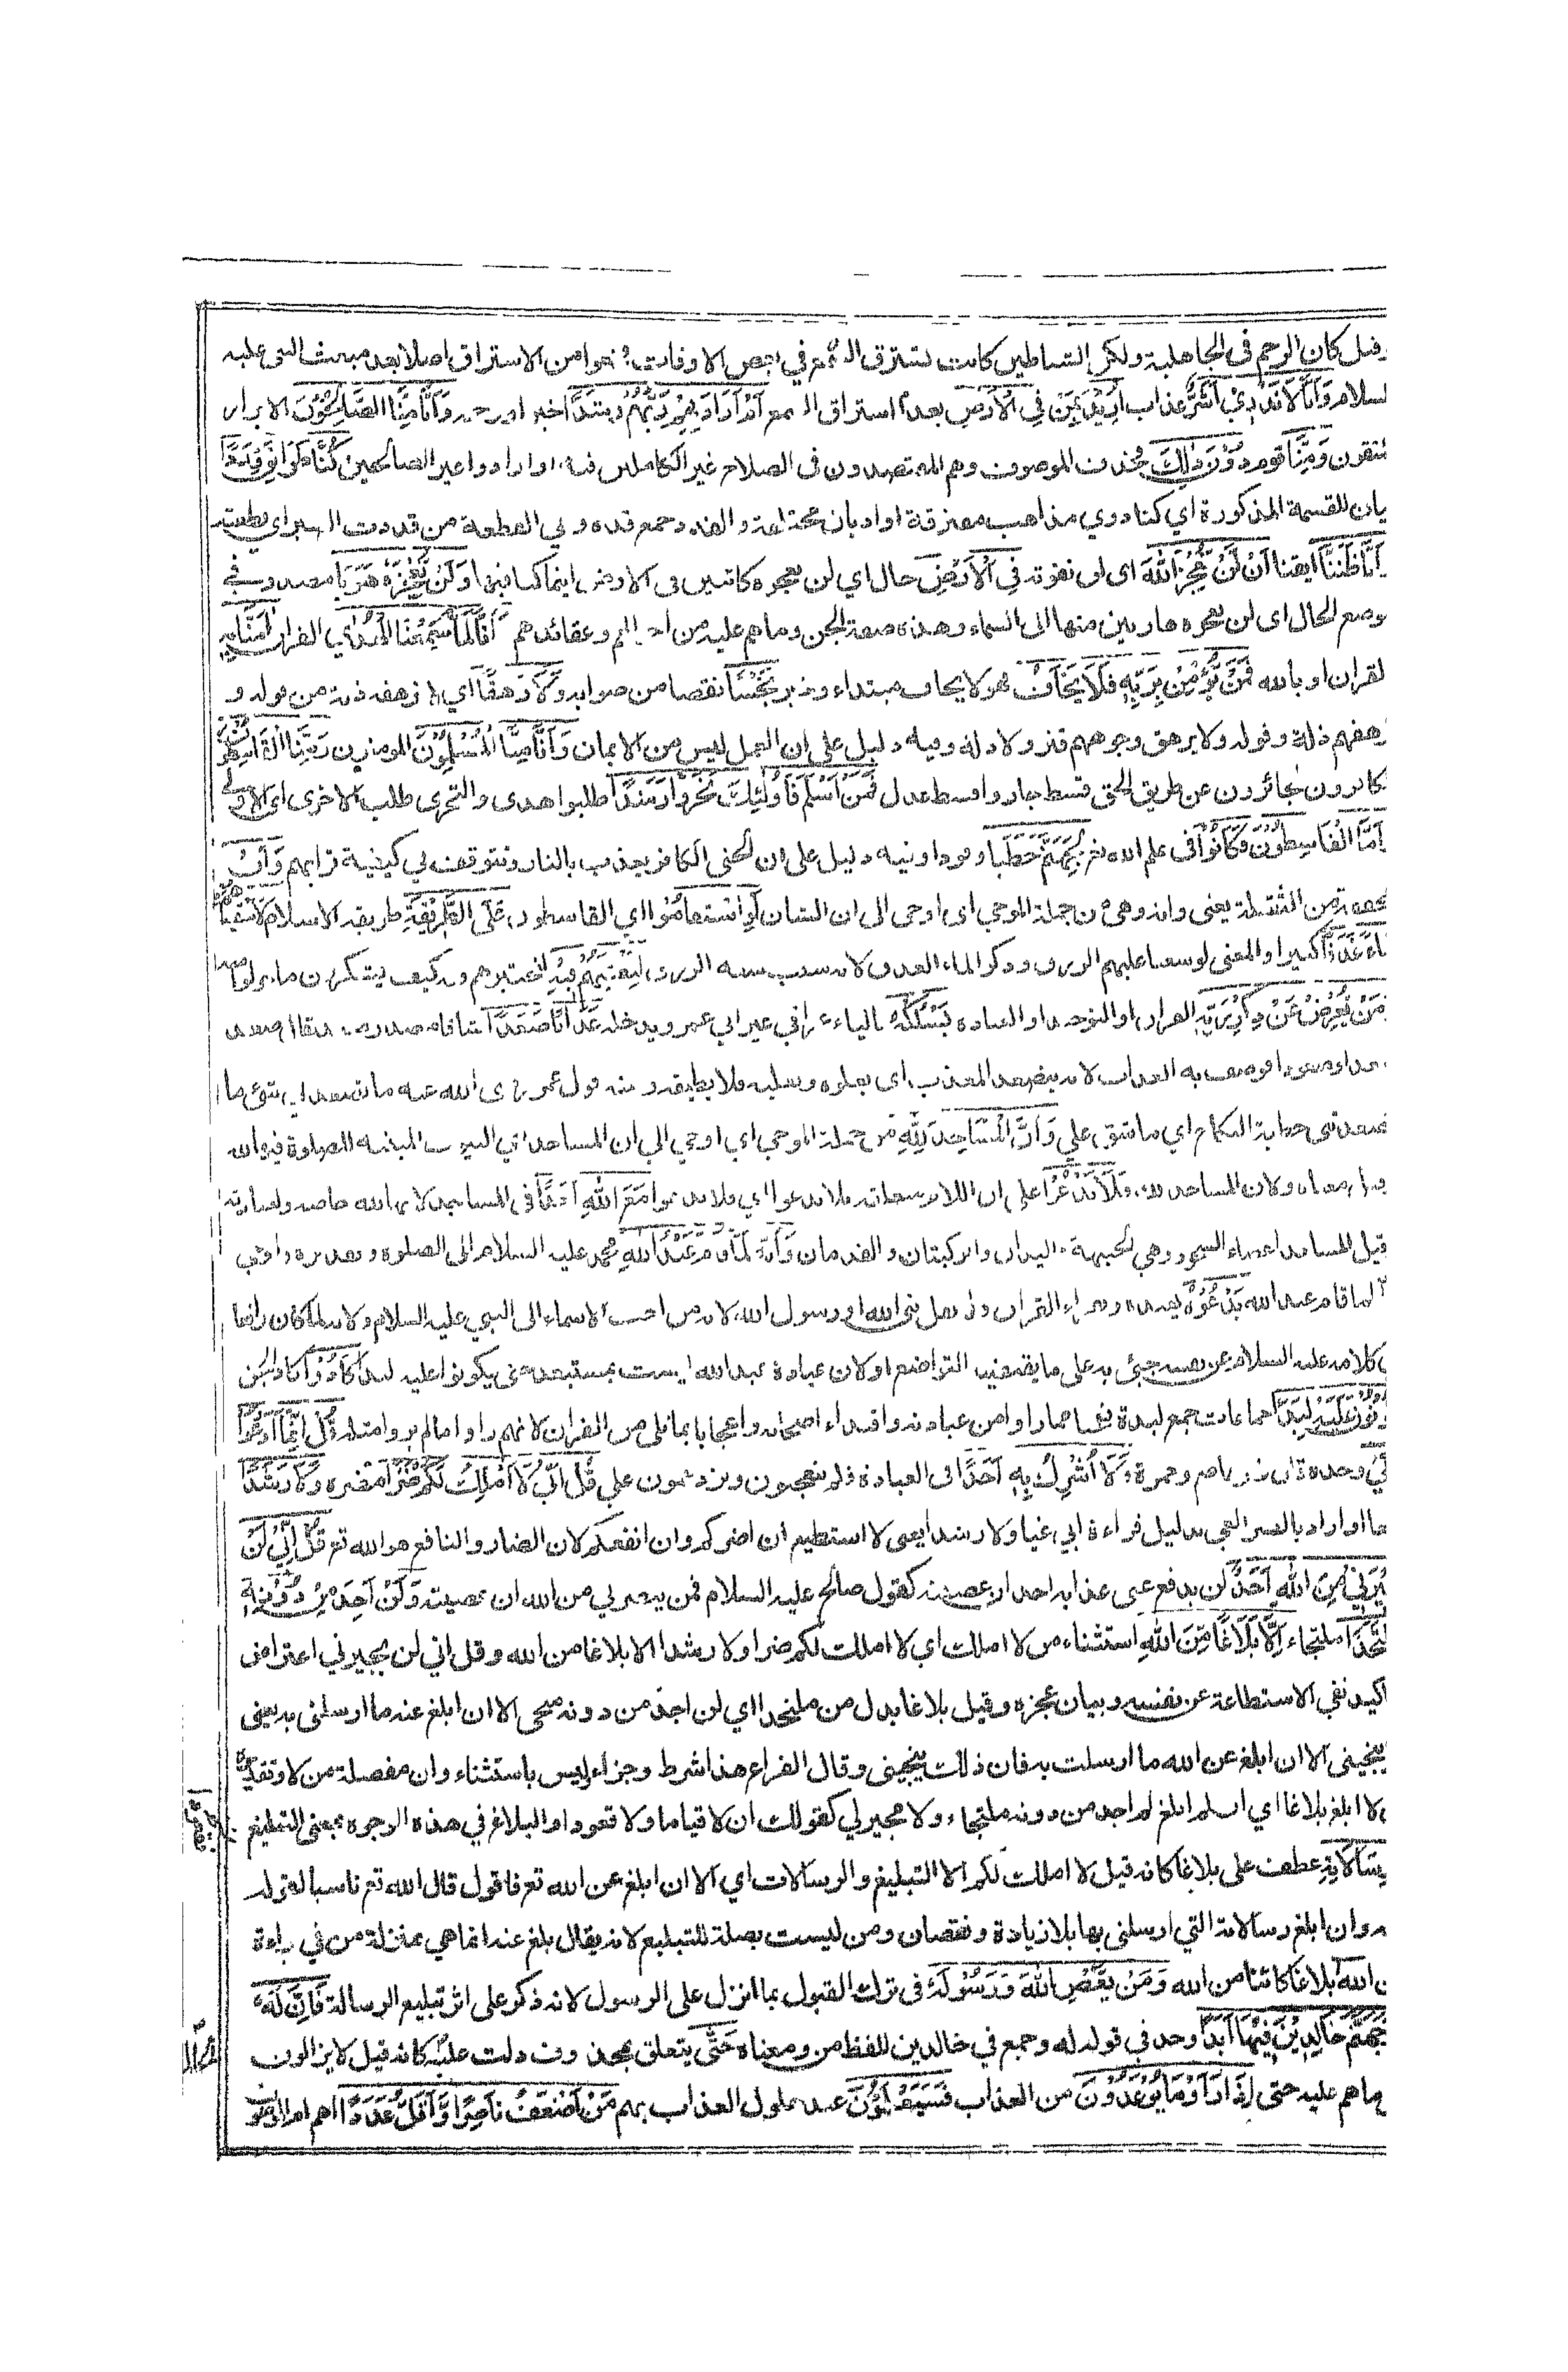 وقيل كان الرجم في الجاهلية ولكن الشياطين كانت تسترق السمع في بعض الاوقات فمنعوا من الاستراق اصلا بعد مبعث النبي عليه
السلام وَاَنَّا لَا نَدْرِيْ اَشَرٌّ عذاب اُرِيْدَ بِمَنْ فِي الْاَرْضِ بعدم استراق السمع اَمْ اَرَادَ بِهِمْ رَبُّهُمْ رَشَدًا خيرا ورحمة وَاَنَّا مِنَّا الصَّالِحُوْنَ الابرار
المتقون وَمِنَّا قوم دُوْنَ ذٰلِكَ فحذف الموصوف وهم المقتصدون في الصلاح غير الكاملين فيه او ارادوا غير الصالحين كُنَّا طَرَائِقَ قِدَدًا
بيان للقسمة المذكورة اي كنا ذوي مذاهب متفرقة او اديان مختلفة والقدد جمع قدة وهي القطعة من قددت السير اي قطعته
وَاَنَّا ظَنَنَّا ايقنا اَنْ لَنْ نُعْجِزَ اللّٰهَ اي لن نفوته فِي الْاَرْضِ حال اي لن نعجزه كائنين في الارض اينما كنا فيها وَلَنْ نُعْجِزَهٗ هَرَبًا مصدر في
موضع الحال اي لن نعجزه هاربين منها الى السماء وهذه صفة الجن وما هم عليه من احوالهم وعقائدهم وَاَنَّا لَمَّا سَمِعْنَا الْهُدٰى اي القران اٰمَنَّا بِهٖ
بالقران او بالله فَمَنْ يُؤْمِنْ بِرَبِّهٖ فَلَا يَخَافُ فهو لا يخاف مبتداء وخبر بَخْسًا نقصا من ثوابه وَلَا رَهَقًا اي ترهقه ذلة من قوله و
ترهقهم ذلة وقوله ولا يرهق وجوههم قتر ولا ذلة وفيه دليل على ان العمل ليس من الايمان وَاَنَّا مِنَّا الْمُسْلِمُوْنَ المومنون وَمِنَّا الْقَاسِطُوْنَ
الكافرون الجائرون عن طريق الحق قسط جار واقسط عدل فَمَنْ اَسْلَمَ فَاُولٰئِكَ تَحَرَّوْا رَشَدًا طلبوا هدى والتحري طلب الاحرى اي الاولى
وَاَمَّا الْقَاسِطُوْنَ فَكَانُوْا في علم الله لِجَهَنَّمَ حَطَبًا وقودا وفيه دليل على ان الجني الكافر يعذب بالنار ونتوقف في كيفية ثوابهم وَاَنْ
مخففة من الثقيلة يعني وانه وهي من جملة الموحى اي اوحي الي ان الشان لَوِ اسْتَقَامُوْا اي القاسطون عَلَى الطَّرِيْقَةِ طريقة الاسلام لَاَسْقَيْنَاهُمْ
مَاءً غَدَقًا كثيرا والمعنى لوسعنا عليهم الرزق وذكر الماء الغدق لانه سبب سعة الرزق لِنَفْتِنَهُمْ فِيْهِ لنختبرهم فيه كيف يشكرون ما خولوا
وَمَنْ يُعْرِضْ عَنْ ذِكْرِ رَبِّهِ القران او التوحيد او العبادة يَسْلُكْهُ بالياء عراقي غير ابي عمرو يدخله عَذَابًا صَعَدًا شاقا مصدر صعد يقال صعد
صعدا وصعودا فوصف به العذاب لانه يتصعد المعذب اي يعلوه ويغلبه فلا يطيقه ومنه قول عمر رضي الله عنه ما تصعدني شيء ما
تصعدتني خطبة النكاح اي ما شق علي وَاَنَّ الْمَسَاجِدَ لِلّٰهِ من جملة الموحى اي اوحي الي ان المساجد اي البيوت المبنية للصلوة فيها لله
وقيل معناه ولان المساجد لله فَلَا تَدْعُوْا على ان اللام متعلقة بلا تدعوا اي فلا تدعوا مَعَ اللّٰهِ اَحَدًا في المساجد لانها لله خاصة ولعبادته
وقيل المساجد اعضاء السجود وهي الجبهة واليدان والركبتان والقدمان وَاَنَّهٗ لَمَّا قَامَ عَبْدُ اللّٰهِ محمد عليه السلام الى الصلوة وتقديره واوحي
الي انه لما قام عبد الله يَدْعُوْهُ يعبده ويقرا القران ولم يقل نبي الله او رسول الله لانه من احب الاسماء الى النبي عليه السلام ولانه لما كان واقعا
في كلامه عليه السلام عن نفسه جيئ به على ما يقتضيه التواضع او لان عبادة عبد الله ليست بمستبعد حتى يكونوا عليه لبدا كَادُوْا كاد الجن
يَكُوْنُوْنَ عَلَيْهِ لِبَدًا جماعات جمع لبدة تعجبا مما راوا من عبادته واقتداء اصحابه واعجابا بما تلى من القران لانهم راوا ما لم يروا مثله قُلْ اِنَّمَا اَدْعُوْا
رَبِّيْ وحده قال غير عاصم وحمزة وَلَا اُشْرِكُ بِهٖ اَحَدًا في العبادة فلم تتعجبون وتزدحمون علي قُلْ اِنِّيْ لَا اَمْلِكُ لَكُمْ ضَرًّا مضرة وَلَا رَشَدًا
نفعا او اراد بالضر الغي بدليل قراءة ابي غيا ولا رشدا يعني لا استطيع ان اضركم وان انفعكم لان الضار والنافع هو الله تع قُلْ اِنِّيْ لَنْ
يُجِيْرَنِيْ مِنَ اللّٰهِ اَحَدٌ لن يدفع عني عذابه احد ان عصيته كقول صالح عليه السلام فمن ينصرني من الله ان عصيته وَلَنْ اَجِدَ مِنْ دُوْنِهٖ
مُلْتَحَدًا ملتجاء اِلَّا بَلَاغًا مِّنَ اللّٰهِ استثناء من لا املك اي لا املك لكم ضرا ولا رشدا الا بلاغا من الله وقل اني لن يجيرني اعتراض
لتاكيد نفي الاستطاعة عن نفسه وبيان عجزه وقيل بلاغا بدل من ملتحدا اي لن اجد من دونه منجى الا ان ابلغ عنه ما ارسلني به يعني
لا ينجيني الا ان ابلغ عن الله ما ارسلت به فان ذلك ينجيني وقال الفراء هذا شرط وجزاء وليس باستثناء وان مفصلة من لا وتقديره
ان لا ابلغ بلاغا اي ان لم ابلغ لم اجد من دونه ملتجاء ولا مجير لي كقولك ان لا قياما ولا قعودا والبلاغ في هذه الوجوه بمعنى التبليغ
وَرِسَالَاتِهٖ عطف على بلاغا كانه قيل لا املك لكم الا التبليغ والرسالات اي الا ان ابلغ عن الله تع فاقول قال الله تع ناسبا لقوله
اليه وان ابلغ رسالاته التي ارسلني بها بلا زيادة ونقصان ومن ليست بصلة للتبليغ لانه يقال بلغ عنه انما هي بمنزلة من في براءة
من الله بلاغا كائنا من الله وَمَنْ يَعْصِ اللّٰهَ وَرَسُوْلَهٗ في ترك القبول بما انزل على الرسول لانه ذكر على اثر تبليغ الرسالة فَاِنَّ لَهٗ
نَارَ جَهَنَّمَ خَالِدِيْنَ فِيْهَا اَبَدًا وحد في قوله له وجمع في خالدين للفظ من ومعناه حَتّٰى يتعلق بمحذوف دلت عليه كانه قيل لا يزالون
على ما هم عليه حتى اِذَا رَاَوْا مَا يُوْعَدُوْنَ من العذاب فَسَيَعْلَمُوْنَ عند حلول العذاب بهم مَنْ اَضْعَفُ نَاصِرًا وَّاَقَلُّ عَدَدًا اهم ام المؤمنون